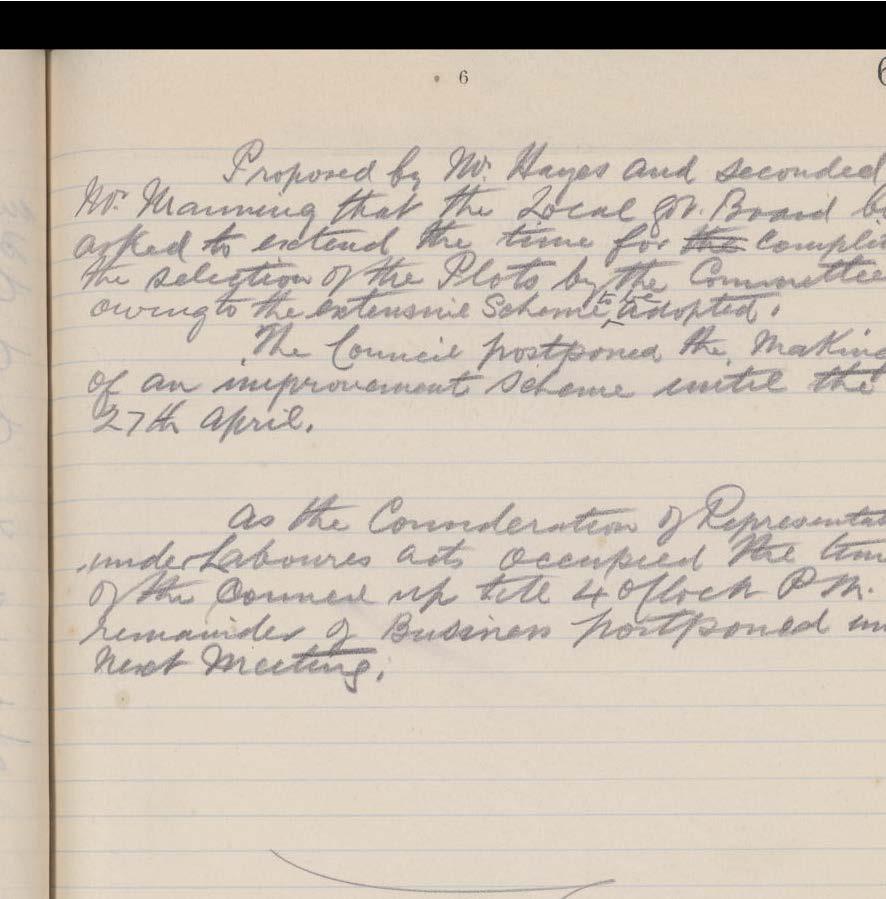 6
6
Proposed by Mr. Hayes and seconded
Mr. Manning that the Local gov. Board b
asked to extend the time for the Compli
the selection of the Plots by the Committee
owing to the extensive Scheme to be adopted.
The Council postponed the Making
of an improvement Scheme until the
27th April.
As the Consideration of Representat
under Laboures acts occupied the tim
of the Council up till 4 O'Clock P.M.
remainder of Business postponed un
Next Meeting.